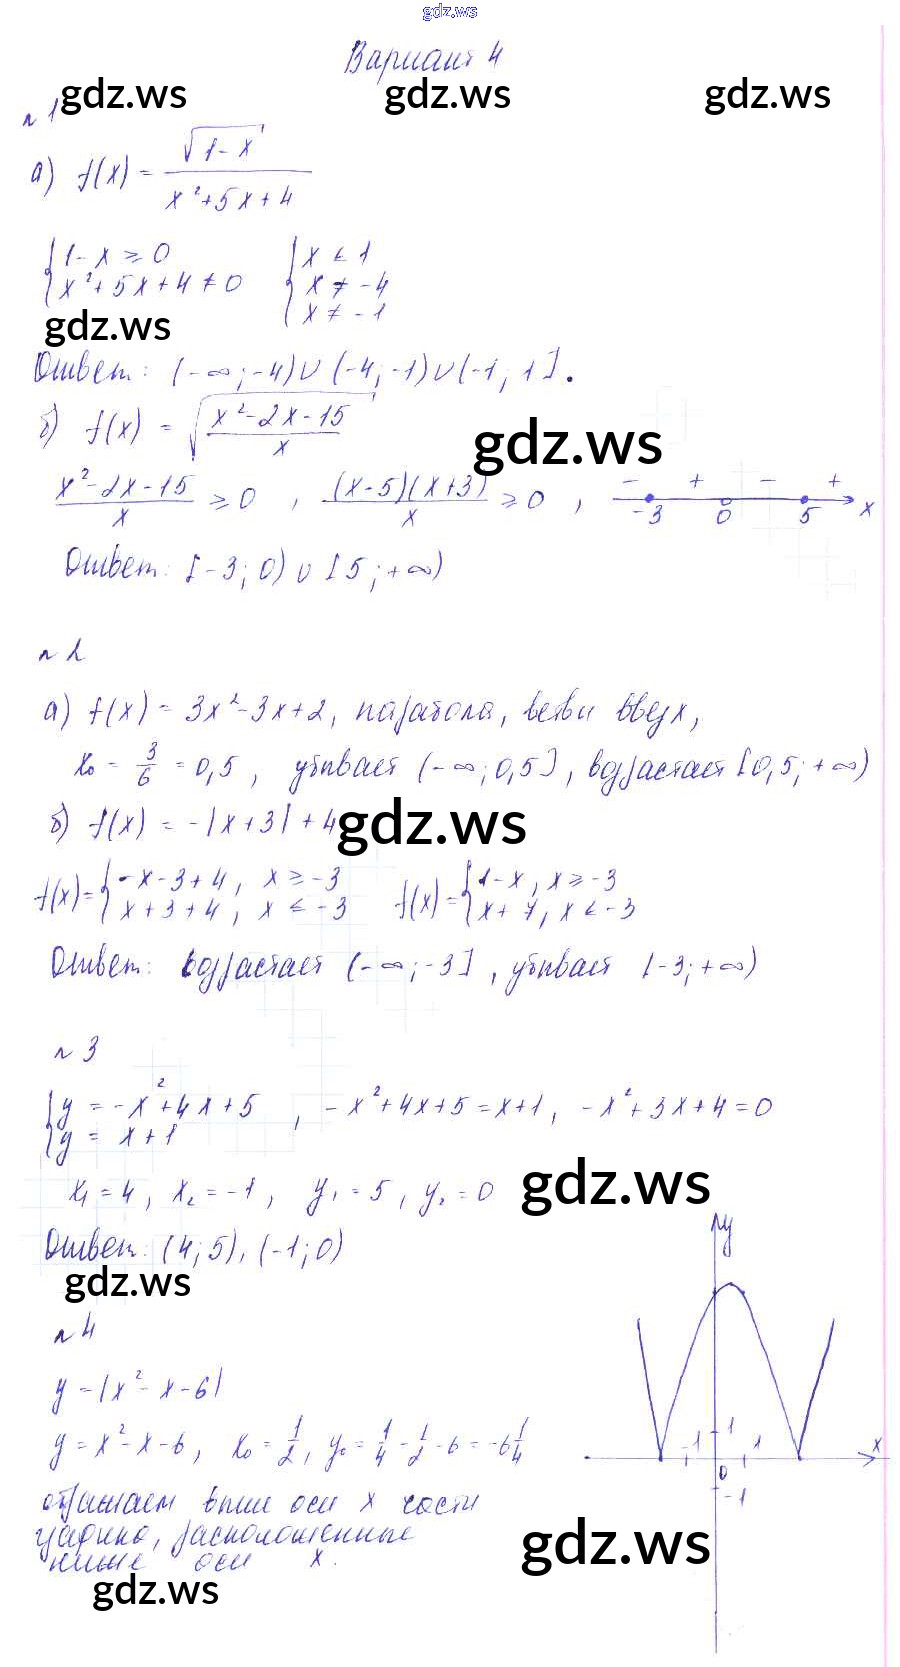 gdz.ws
Вариант 4
gdz.ws gdz.ws gdz.ws
n 1
а) f(x) = √(1-x) / (x²+5x+4)
{ 1-x ≥ 0 { x < 1
x²+5x+4 ≠ 0 x ≠ -4
x ≠ -1
gdz.ws
Ответ: (-∞;-4)∪(-4;-1)∪(-1;1].
б) f(x) = √((x²-2x-15)/x)
gdz.ws
(x²-2x-15)/x ≥ 0 , (x-5)(x+3)/x ≥ 0 , - + - + -3 0 5 x
Ответ: [-3;0)∪[5;+∞)
n 2
а) f(x) = 3x²-3x+2, парабола, ветви вверх,
x₀ = 3/6 = 0,5 , убывает (-∞;0,5] , возрастает [0,5;+∞)
б) f(x) = -|x+3|+4
gdz.ws
f(x)={ -x-3+4, x ≥ -3 f(x)={ 1-x, x ≥ -3
x+3+4, x < -3 x+7, x < -3
Ответ: возрастает (-∞;-3] , убывает [-3;+∞)
n 3
{ y = -x²+4x+5 , -x²+4x+5=x+1, -x²+3x+4=0
y = x+1
x₁=4, x₂=-1, y₁=5, y₂=0
gdz.ws
Ответ: (4;5), (-1;0)
gdz.ws
n 4
y
y=|x²-x-6|
y=x²-x-6, x₀=1/2, y₀=1/4-1/2-6=-6 1/4
-1 1 1 x
0
-1
отражаем выше оси x части
графика, расположенные
ниже оси x.
gdz.ws
gdz.ws